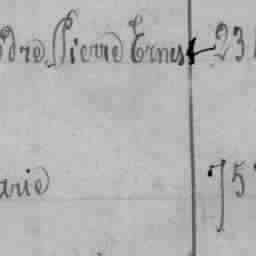 dre Pierre Ernest 23
arie 75